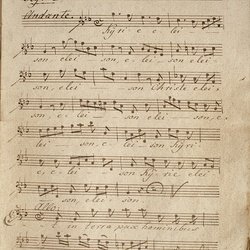 Andante.
Kyri - e e - lei -
son, elei - son elei - son elei -
son, elei - son Christe elei -
son, e - lei - son elei -
lei - son elei - son Kyri -
e elei - son, Kyrie elei -
son, elei - son
Et in terra pax hominibus